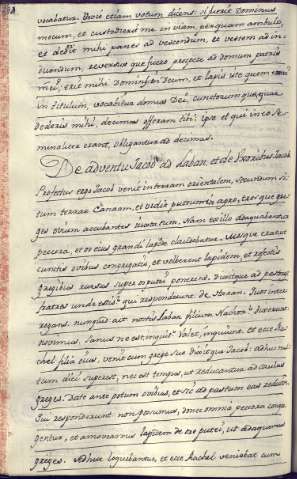 vocabatur. Vovit etiam votum dicens: si fuerit Dominus
mecum, et custodierit me in viam, per quam ambulo,
et dederit mihi panes ad vescendum, et vestem ad in-
duendum, reversus que fuero prospere ad domum patris
mei, erit mihi Dominus in Deum, et lapis iste quem erexi
in titulum, vocabitur domus Dei, cunctorum que, quæ
dederis mihi, decimas offeram tibi:
erant, obligantur ad decimas.
De adventu Jacob ad Laban, et de Uxoribus Jacob
Profectus ergo Jacob venit in terram orientalem,
terram Canaam, et vidit puteum in agro, tres que gre-
ges ovium accubantes juxta eum. Nam ex illo adaquabantur
pecora, et os eius grandi lapide claudebatur. Mosque erat ut
cunctis ovibus congregatis, et volverent lapidem, et refectis
gregibus rursus super os putei ponerent. Dixitque ad pastores
fratres unde estis? qui responderunt de Haran. Quos inter-
rogans, numquid ait nostis Laban filium Nachor? dixerunt
novimus. Sanus ne est inquit? Valet, inquiunt: et ecce Ra-
chel filia eius, venit cum grege suo. Dixitque Jacob: adhuc mul-
tum diei superest, nec est tempus, ut reducantur ad caulas
greges. Date ante potum ovibus, et sic ad pastum eas reducite.
Qui responderunt non possumus, donec omnia pecora congre-
gentur, et amoveamus lapidem de ore putei, ut adaquemus
greges. Adhuc loquebantur, et ecce Rachel veniebat cum